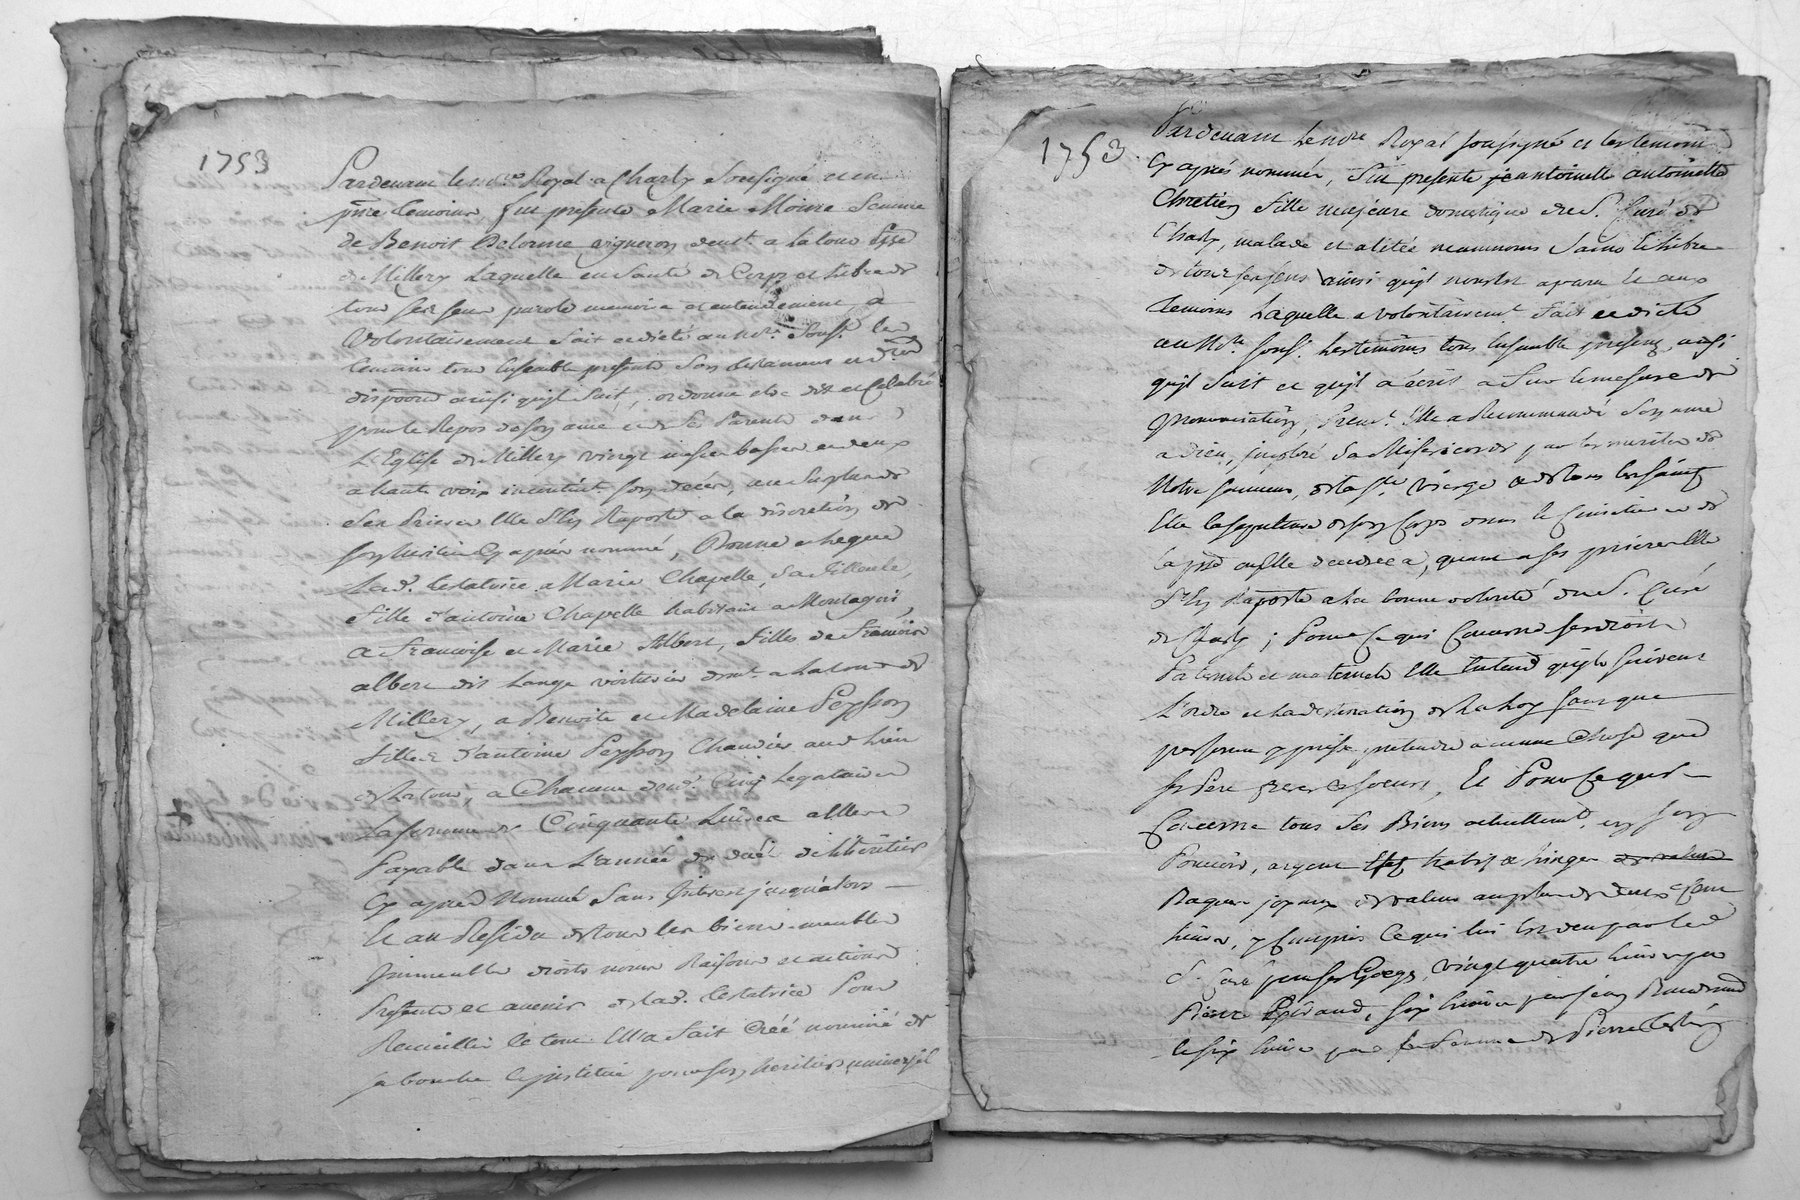 1753
Pardevant le no.re Royal a Charly Sousigné et en
p.nce temoins, fut presente Marie Moine femme
de Benoit Delorme vigneron demt. a la tour P.sse
de Millery Laquelle en Santé de Corps et Libre de
tous ses sens parole memoire et entendement a
Volontairement fait et dicté au no.re Souss. les
temoins tous ensemble presents Son testament et
disposõn ainsi qu'il Suit, ordonne etre dit et Celebré
pour le Repos de son ame et de Ses Parents dans
L'Eglise de Millery vingt messes basses et deux
a haute voix incontint. son deces, au Surplus de
Ses Prieres Elle S'en Raporte a la discretion de
son heritier Cy apres nommé, Donne et Legue
Lad. testatrice a Marie Chapelle, Sa filleule,
fille d'antoine Chapelle habitant a Montagni,
a francoise et Marie Albert, filles de francois
albert dit Lange voiturier demt. a La tour de
Millery, a Benoite et Madelaine Peysson
filles d'antoine Peysson aud. Lieu
de La tour, a Chacune desd. Cinq Legataires
La somme de Cinquante Livres allers
Payable dans L'année du de L'heritier
Cy apres Nommé Sans Interest jusqu'alors
Et au Residu de tous les biens meubles
Immeubles droits noms Raisons et actions
Presents et avenir de Lad. testatrice Pour
Recueillir le tout Ella fait Créé nommé de
sa bouche et institué pour son heritier universel
1753.
Pardevant Le no.re Royal sousigné et les temoins
Cy après nommés, fut presente antoinette
Chretien fille majeure domestique du S. Curé de
Charly, malade et alitée neanmoins Saine et libre
de tous ses sens ainsi qu'il nous est aparu et aux
temoins Laquelle a volontairemt. fait et dicté
au No.re souss. les temoins tous Ensemble presens, ainsi
qu'il Suit et qu'il a écrit a Sur et mesure de
prononciation, Premt. Elle a Recommandé Son ame
a dieu, imploré Sa Misericorde par les merites de
Notre Sauveur, de la S.te vierge et de tous les Saints
Elû la sepulture de son Corps dans le Cimetiere de
la p.sse ou Elle decedera, quant a ses prieres Elle
S'en Raporte a la bonne volonté du S. Curé
de Charly; Pour Ce qui Concerne ses droits
Paternels et maternels Elle Entend qu'ils suivent
L'ordre et la destination de La Loy sans que
personne y puisse pretendre aucune Chose que
ses Pere freres et soeurs, Et Pour Ce qui
Concerne tous Ses Biens actuellemt. en son
Pouvoir, argent habits et linges
Bagues joyaux de valeur au plus de deux Cent
livres, y Compris Ce qui lui est deu par led.
S. Curé pour ses Gages, vingt quatre livres par
Pierre Giraud, six livres par jean
et six livres par la femme de Pierre